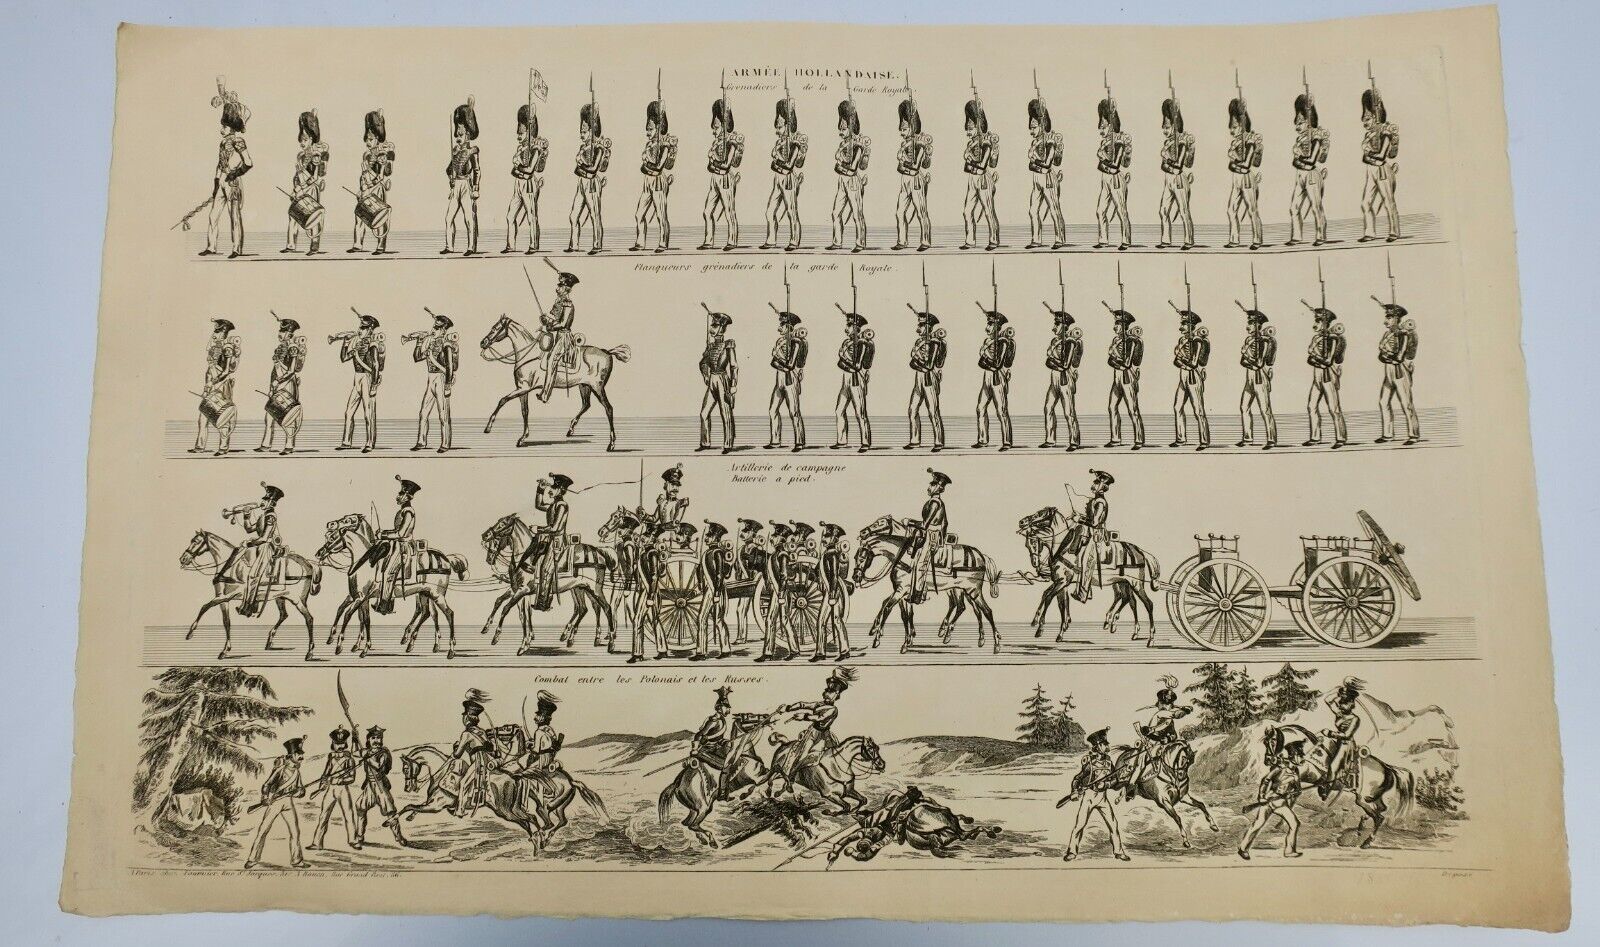 ARMÉE HOLLANDAISE.
Grenadiers de la Garde Royale
Flanqueurs grénadiers de la garde Royale.
Artillerie de campagne
Batterie a pied.
Combat entre les Polonais et les Russes.
A Paris chez Fournier, Rue St Jacques, A Rouen, Rue